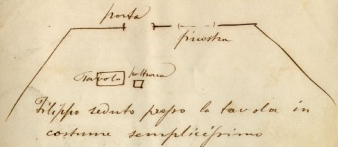 porta
finestra
Tavola poltrona
Filippo seduto presso la tavola in
costume semplicissimo